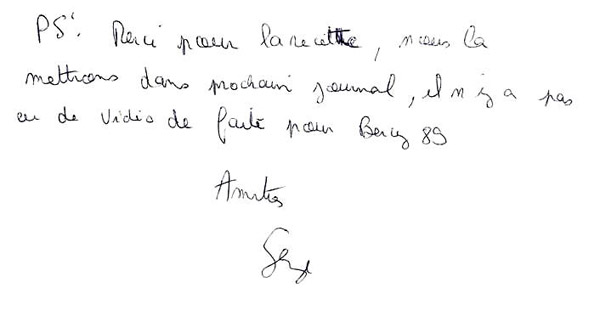 PS: Merci pour la recette, nous la
mettrons dans prochain journal, il n'y a pas
eu de vidéo de faite pour Bercy 89
Amitiés